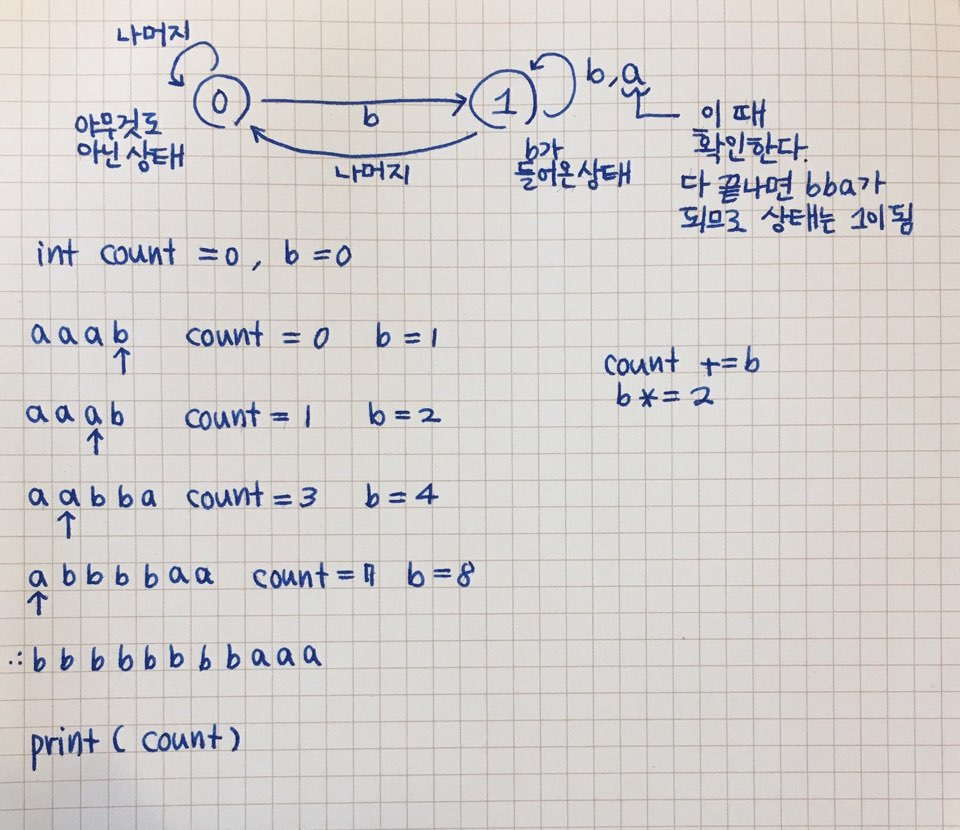 나머지
0
1
b, a
b
나머지
아무것도
아닌 상태
b가
들어온 상태
이 때
확인한다.
다 끝나면 bba가
되므로 상태는 1이 됨
int count = 0, b = 0
a a a b count = 0 b = 1
a a a b count = 1 b = 2
a a b b a count = 3 b = 4
a b b b b a a count = 7 b = 8
∴ b b b b b b b b a a a
count += b
b *= 2
print ( count )